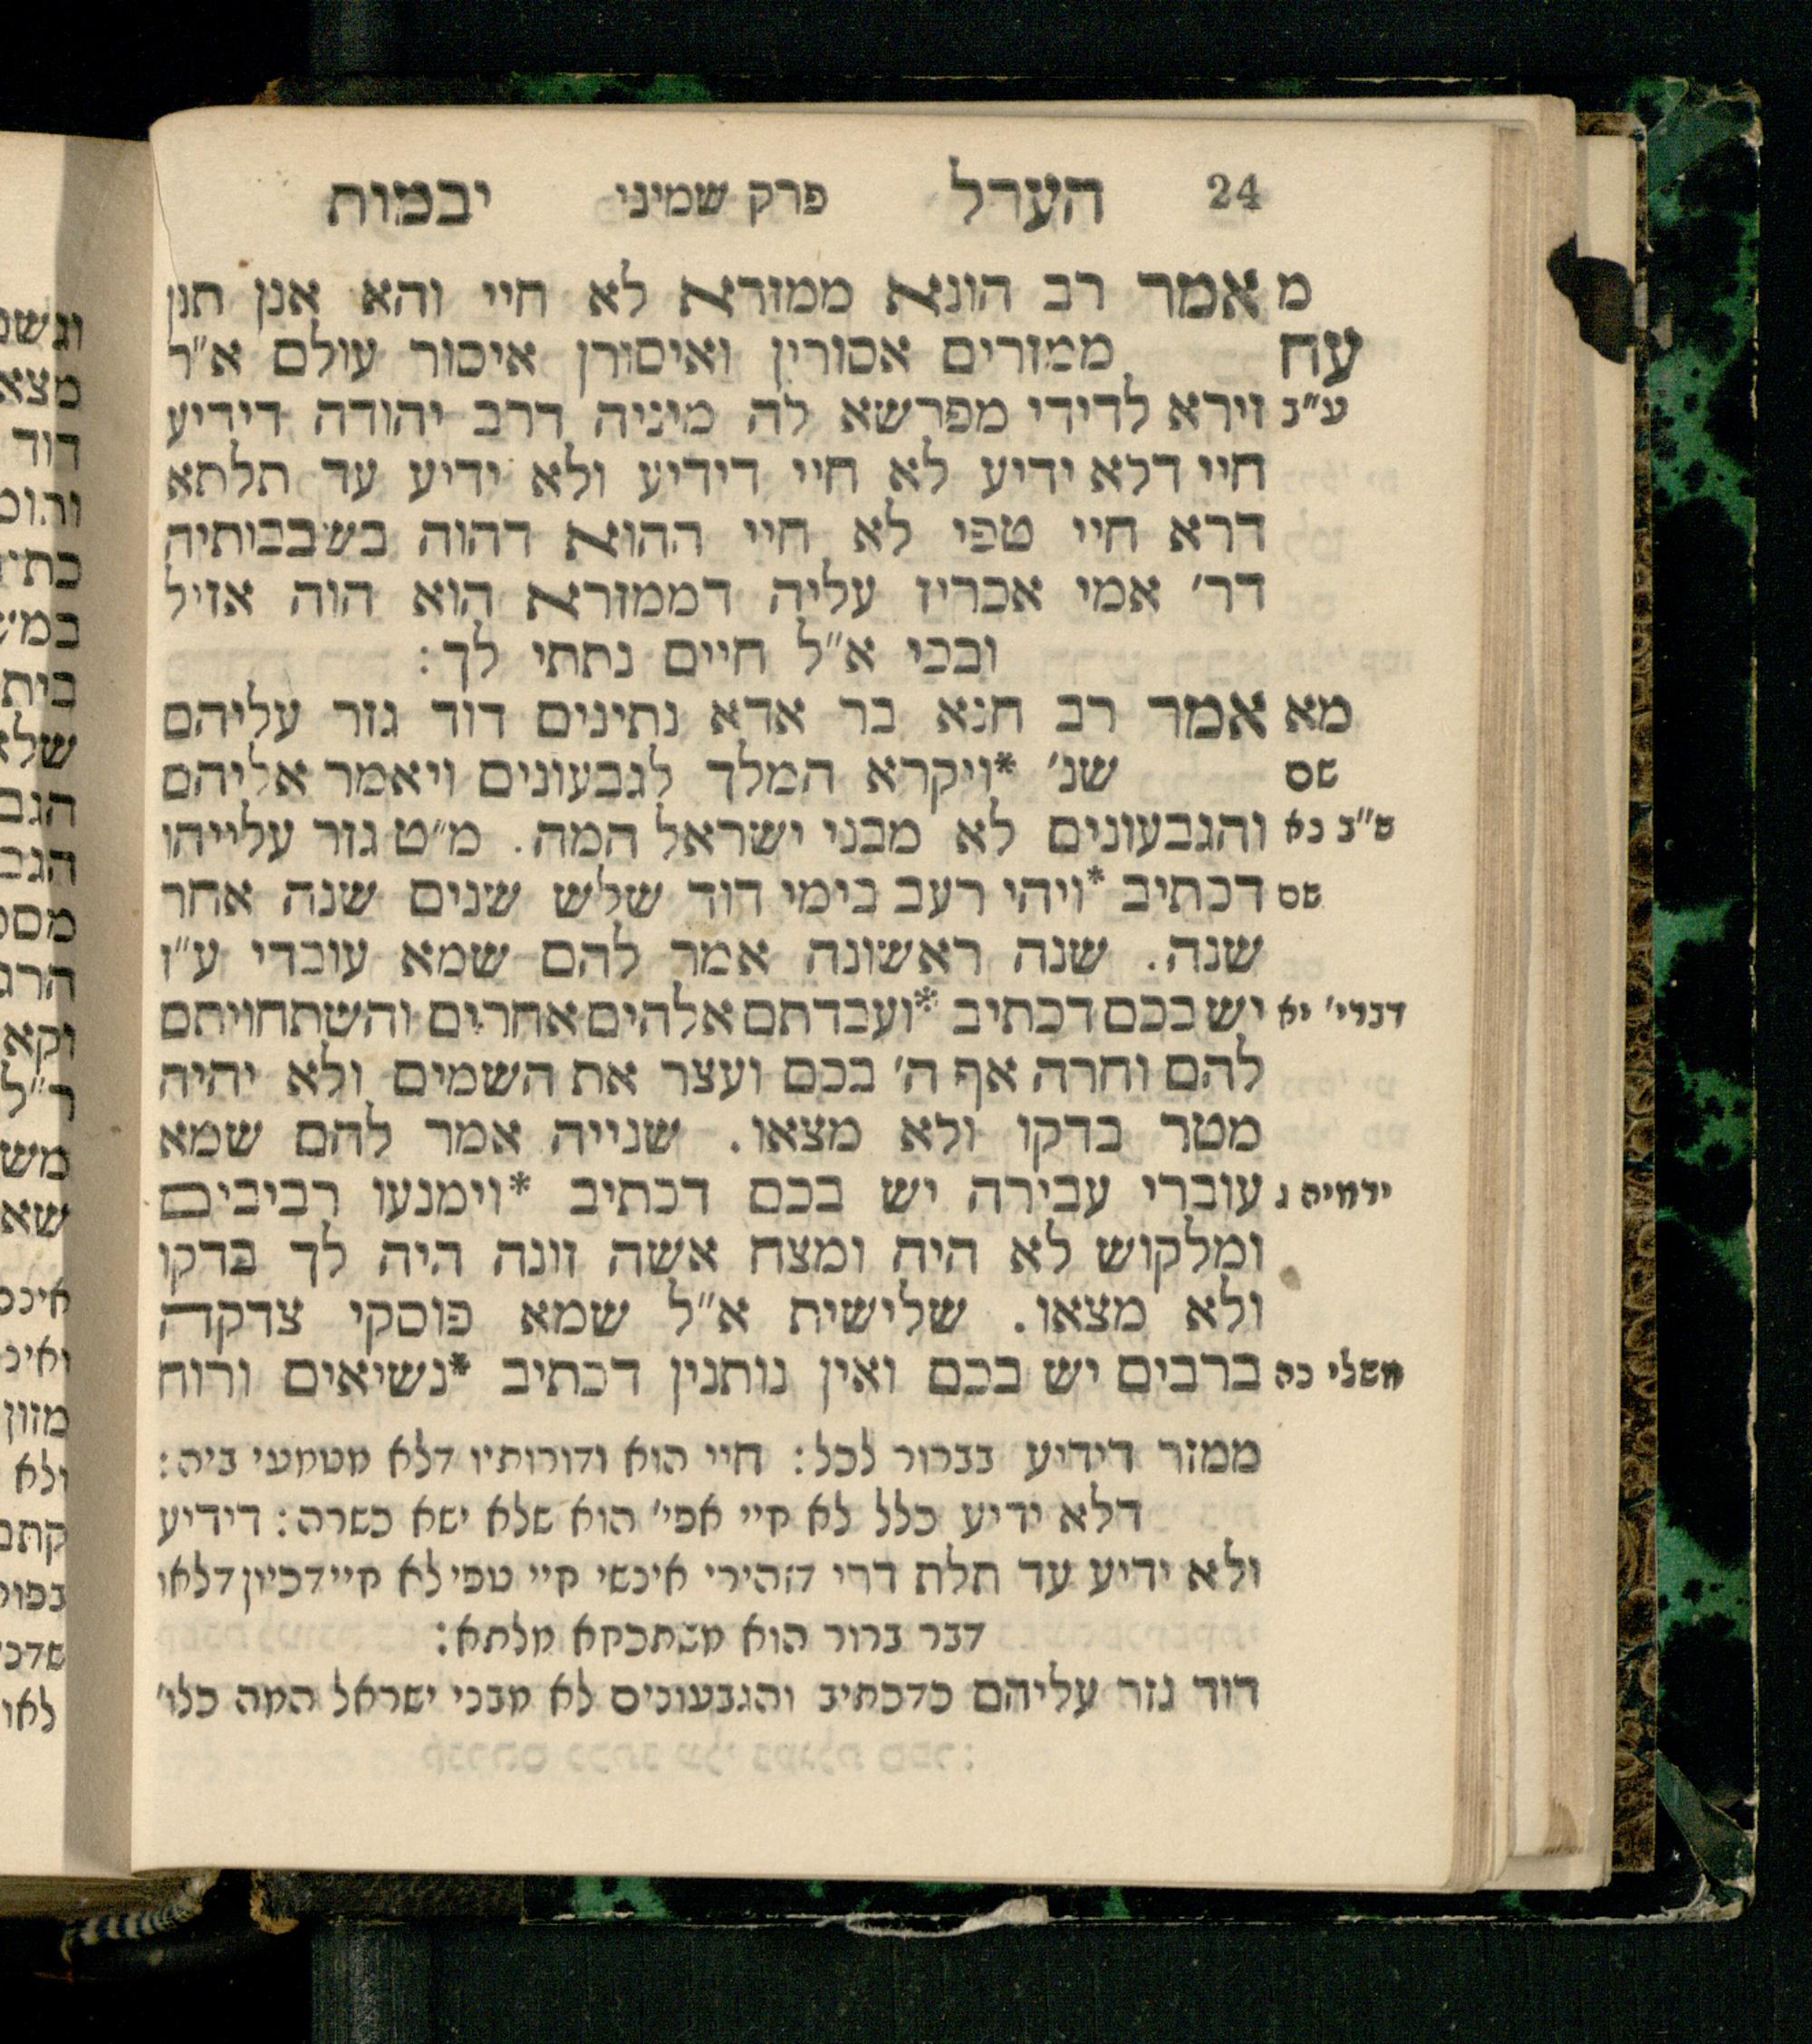 24 הערל פרק שמיני יבמות
מ אמר רב הונא ממזרא לא חיי והא אנן תנן
עח ממזרים אסורין ואיסורן איסור עולם א״ר
ע״ב זירא לדידי מפרשא לה מיניה דרב יהודה דידיע
חיי דלא ידיע לא חיי דידיע ולא ידיע עד תלתא
דרא חיי טפי לא חיי ההוא דהוה בשבבותיה
דר׳ אמי אכריז עליה דממזרא הוא הוה אזיל
ובכי א״ל חיים נתתי לך:
מא אמר רב חנא בר אדא נתינים דוד גזר עליהם
שם שנ׳ *ויקרא המלך לגבעונים ויאמר אליהם
ש״ב כא והגבעונים לא מבני ישראל המה. מ״ט גזר עלייהו
שם דכתיב *ויהי רעב בימי דוד שלש שנים שנה אחר
שנה. שנה ראשונה אמר להם שמא עובדי ע״ז
דברי׳ יא יש בכם דכתיב *ועבדתם אלהים אחרים והשתחויתם
להם וחרה אף ה׳ בכם ועצר את השמים ולא יהיה
מטר בדקו ולא מצאו. שנייה אמר להם שמא
ירמיה ג עוברי עבירה יש בכם דכתיב *וימנעו רביבים
ומלקוש לא היה ומצח אשה זונה היה לך בדקו
ולא מצאו. שלישית א״ל שמא פוסקי צדקה
משלי כה ברבים יש בכם ואין נותנין דכתיב *נשיאים ורוח
ממזר דידיע בברור לכל: חיי הוא ודורותיו דלא מטמעי ביה:
דלא ידיע כלל לא חיי אפי׳ הוא שלא ישא כשרה: דידיע
ולא ידיע עד תלת דרי דהירי אינשי חיי טפי לא חיי דכיון דלאו
דבר ברור הוא משתכחא מלתא:
דוד גזר עליהם כדכתיב והגבעונים לא מבני ישראל המה כלו׳